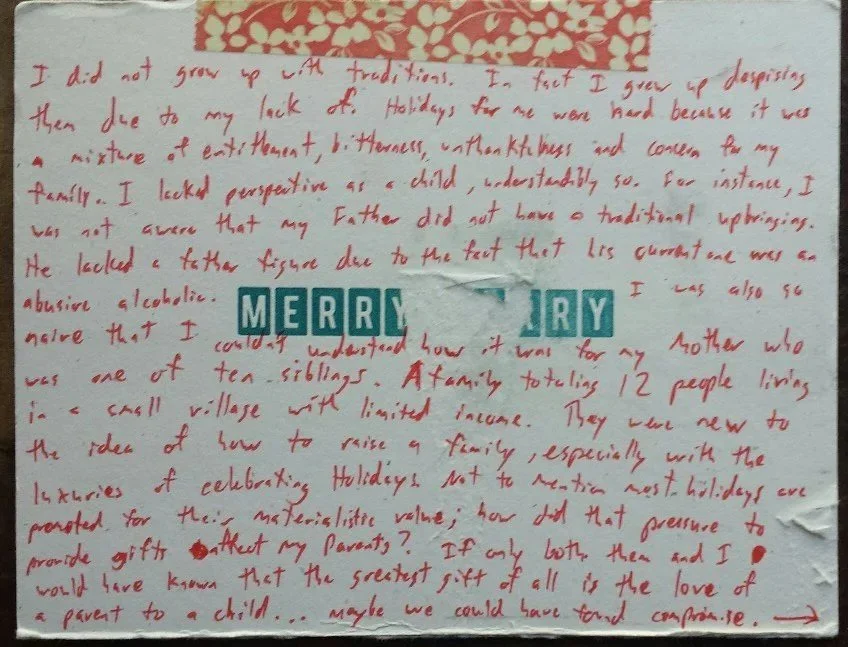 I did not grow up with traditions. In fact I grew up despising
them due to my lack of. Holidays for me were hard because it was
a mixture of entitlement, bitterness, unthankfulness and concern for my
family. I lacked perspective as a child, understandibly so. For instance, I
was not aware that my Father did not have a traditional upbringing.
He lacked a father figure due to the fact that his current one was an
abusive alcoholic. I was also so
MERRY RRY
naive that I couldn't understand how it was for my Mother who
was one of ten siblings. A family totaling 12 people living
in a small village with limited income. They were new to
the idea of how to raise a family, especially with the
luxuries of celebrating Holidays. Not to mention most holidays are
promoted for their materialistic value; how did that pressure to
provide gifts affect my Parents? If only both them and I
would have known that the greatest gift of all is the love of
a parent to a child... maybe we could have found compromise. →